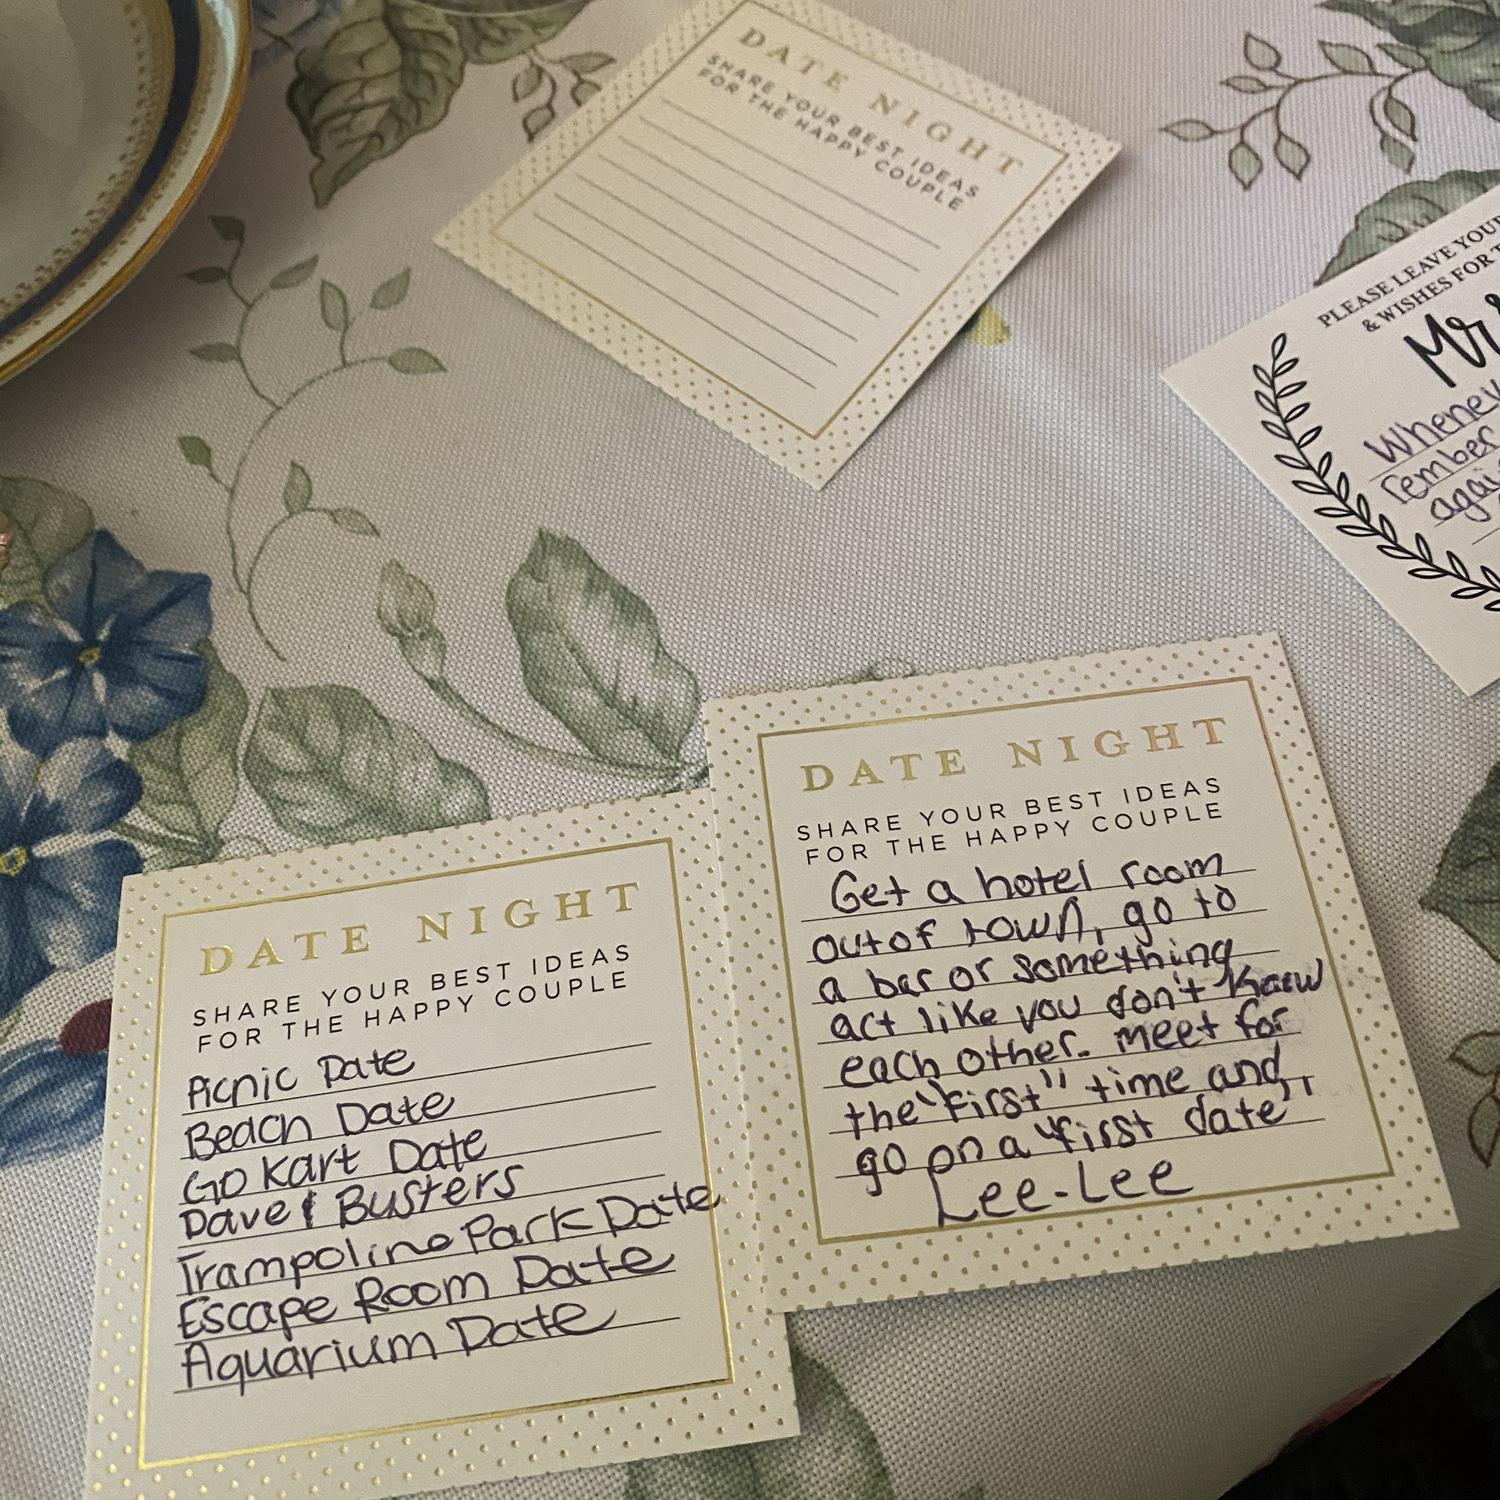 DATE NIGHT
SHARE YOUR BEST IDEAS
FOR THE HAPPY COUPLE
PLEASE LEAVE YOUR
& WISHES FOR
Mr &
Whenev
rember
agai
DATE NIGHT
SHARE YOUR BEST IDEAS
FOR THE HAPPY COUPLE
Picnic Date
Beach Date
Go Kart Date
Dave & Busters
Trampoline Park Date
Escape Room Date
Aquarium Date
DATE NIGHT
SHARE YOUR BEST IDEAS
FOR THE HAPPY COUPLE
Get a hotel room
out of town, go to
a bar or something
act like you don't know
each other. meet for
the "first" time and
go on a "first date"!
Lee-Lee